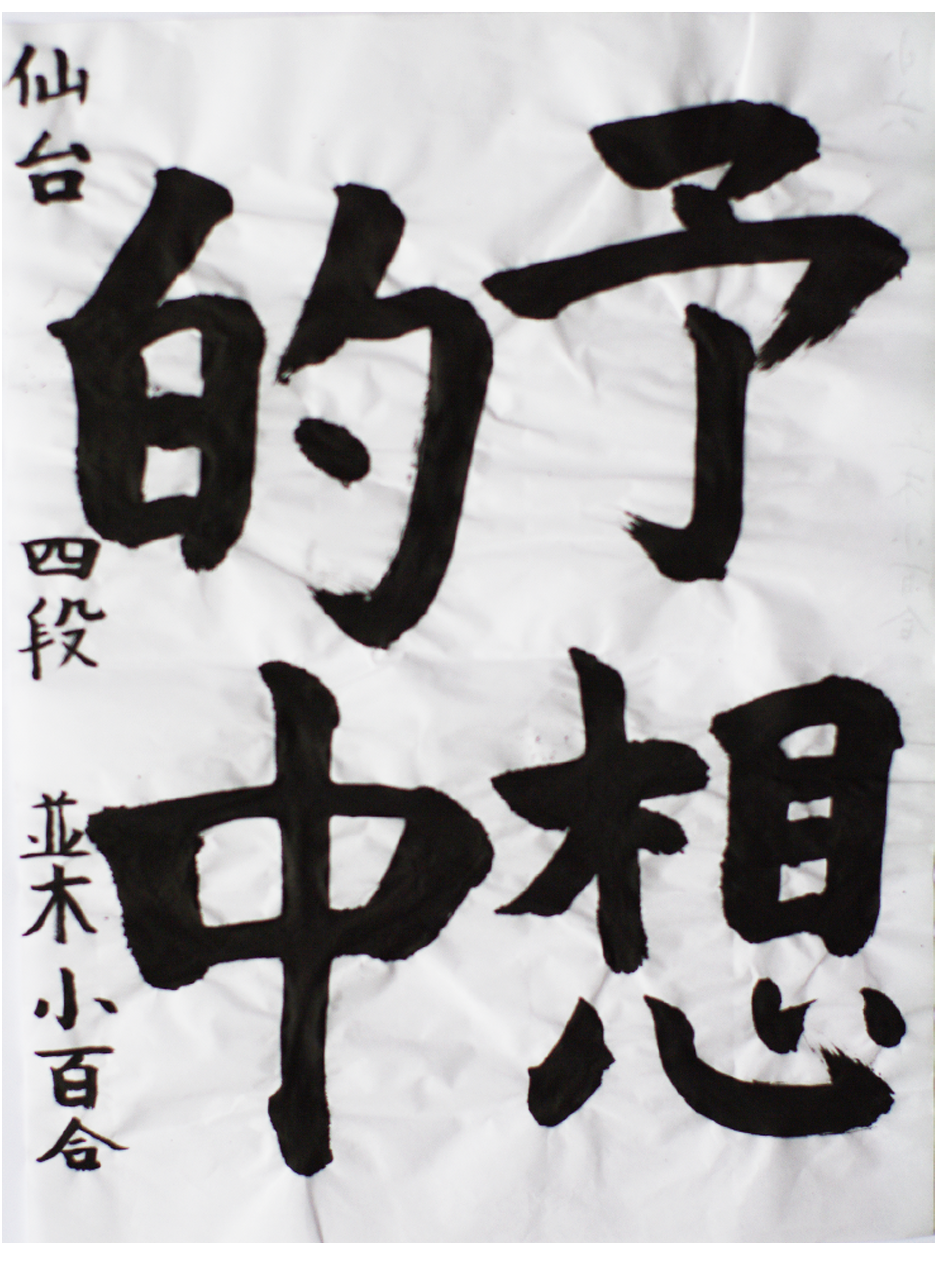 予想
的中
仙台 四段 並木小百合